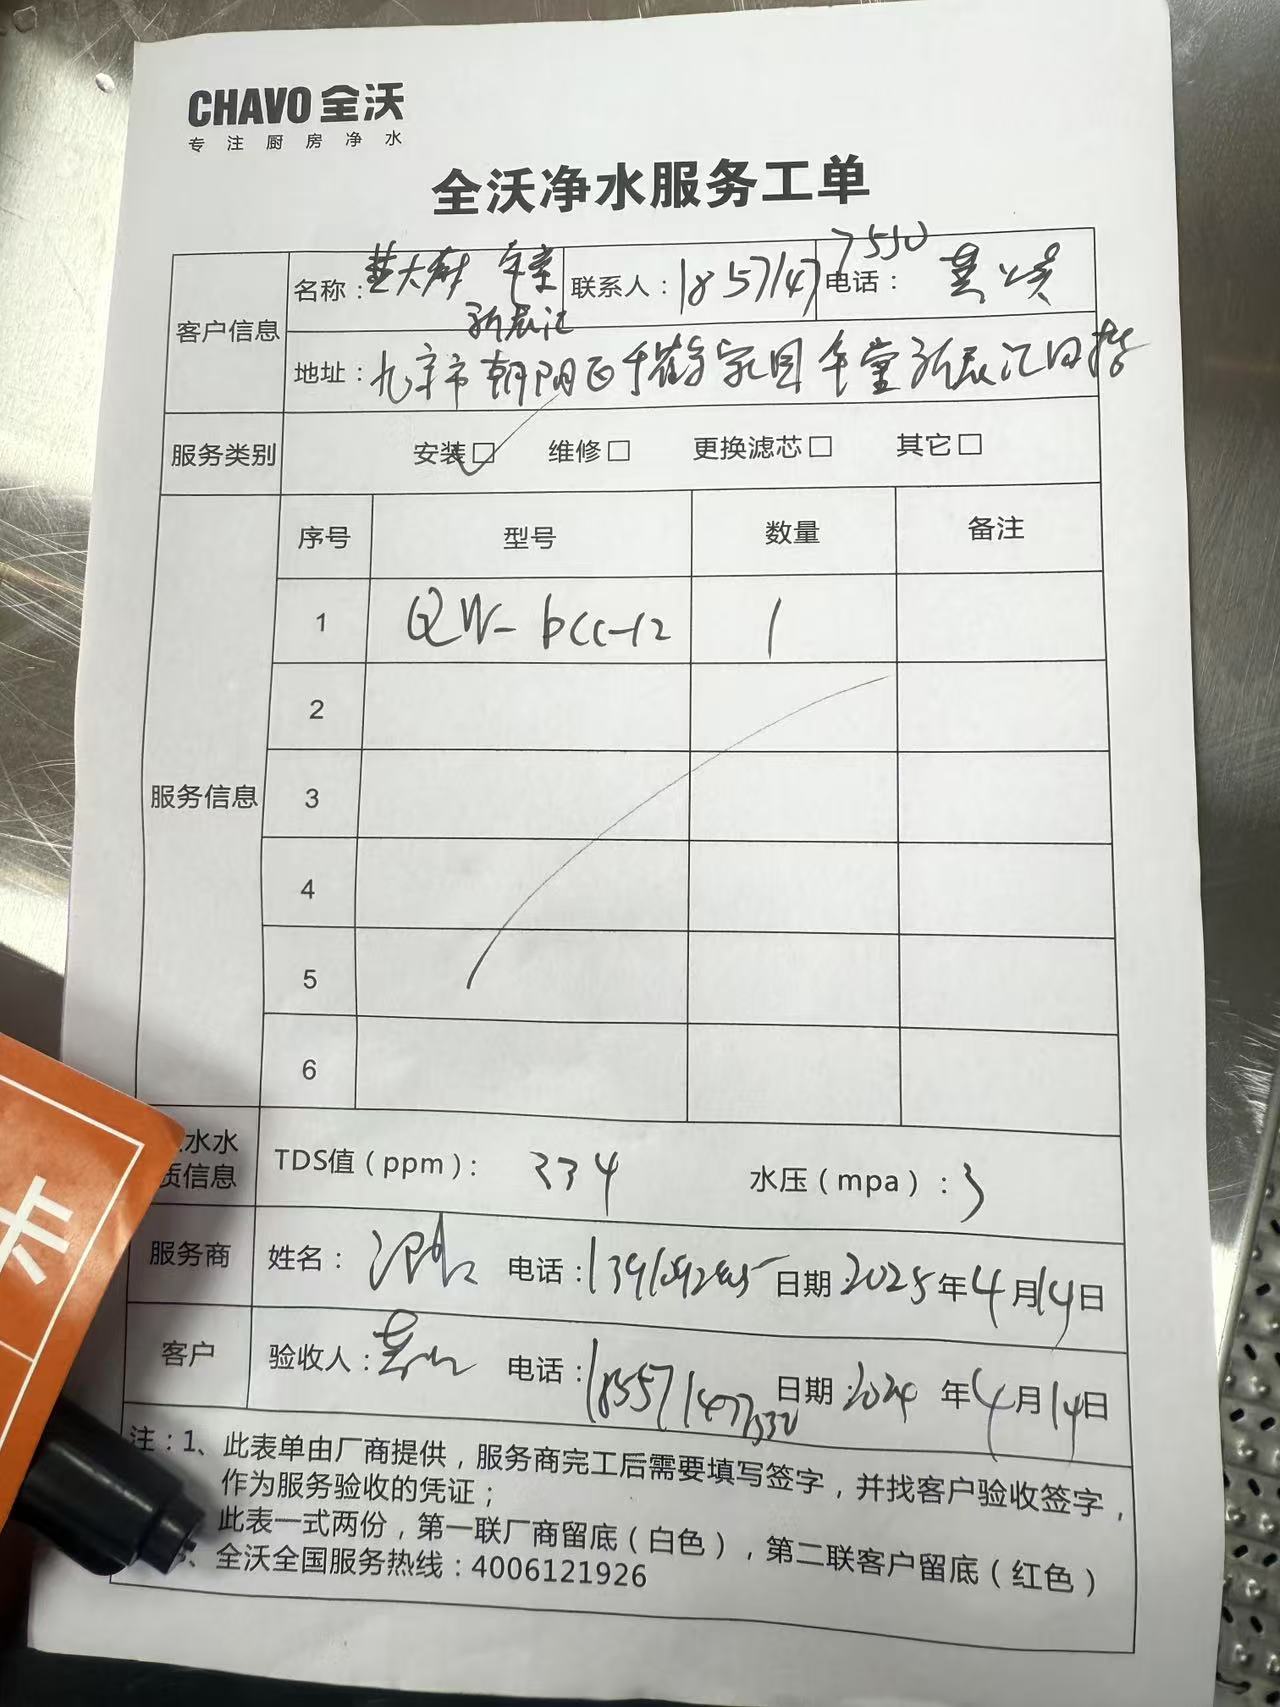 CHAVO 全沃
专注厨房净水
全沃净水服务工单
客户信息
名称：
联系人：1857147 7550
电话：
地址：北京市朝阳区
服务类别
安装☑ 维修□ 更换滤芯□ 其它□
服务信息
序号 型号 数量 备注
1 QW-bcc-12 1
2
3
4
5
6
水水
质信息
TDS值（ppm）： 334 水压（mpa）：3
服务商 姓名： 电话： 日期：2025年4月14日
客户 验收人： 电话： 日期： 年4月14日
注：1、此表单由厂商提供，服务商完工后需要填写签字，并找客户验收签字，
作为服务验收的凭证；
此表一式两份，第一联厂商留底（白色），第二联客户留底（红色）
、全沃全国服务热线：4006121926
卡